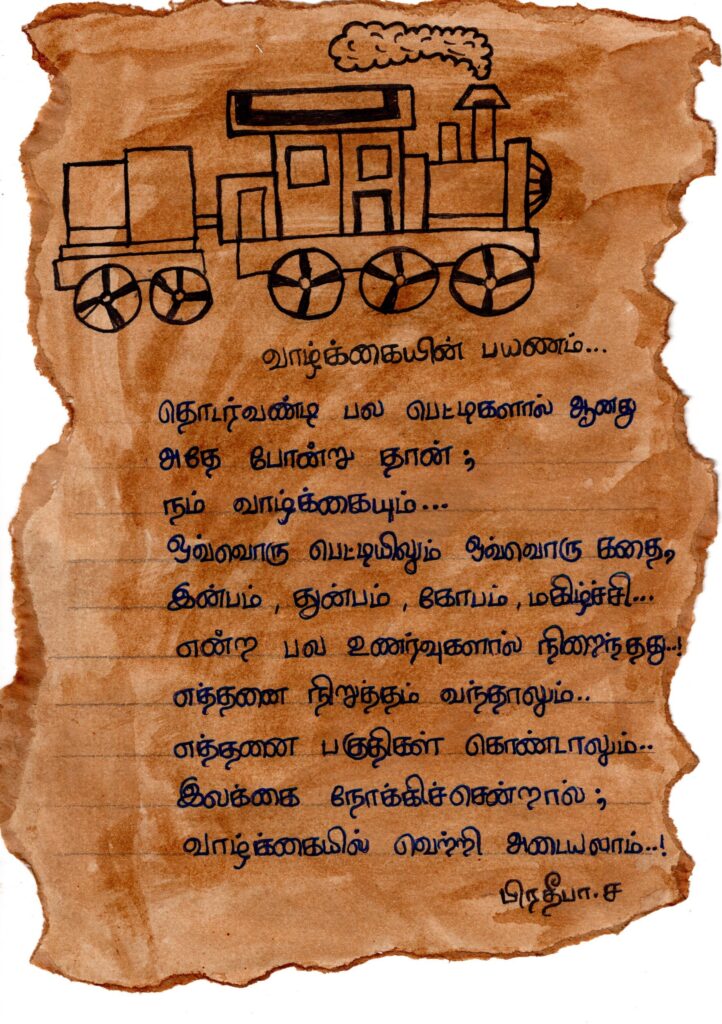 வாழ்க்கையின் பயணம்...
தொடர்வண்டி பல பெட்டிகளால் ஆனது
அதே போன்று தான் ;
நம் வாழ்க்கையும்...
ஒவ்வொரு பெட்டியிலும் ஒவ்வொரு கதை,
இன்பம் , துன்பம் , கோபம் , மகிழ்ச்சி...
என்ற பல உணர்வுகளால் நிறைந்தது..!
எத்தனை நிறுத்தம் வந்தாலும்..
எத்தனை பகுதிகள் கொண்டாலும்..
இலக்கை நோக்கிச்சென்றால் ;
வாழ்க்கையில் வெற்றி அடையலாம்..!
பிரதீபா.ச